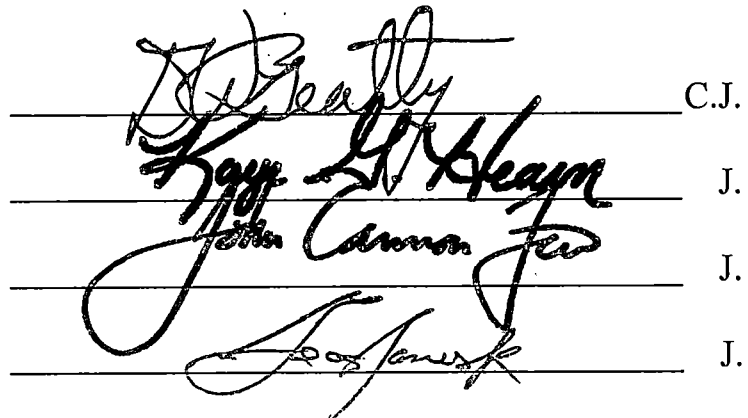 D W Beatty C.J.
Kaye G Hearn J.
John Cannon Few J.
J.